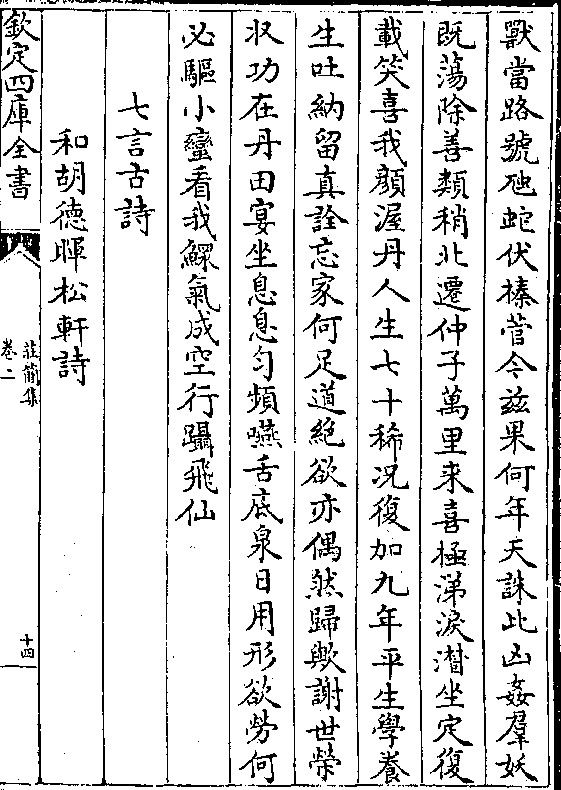 獸當路號虺蛇伏榛菅今兹果何年天誅此凶姦羣妖
既蕩除善類稍北遷仲子萬里来喜極涕淚潸坐定復
載笑喜我顔渥丹人生七十稀况復加九年平生學養
生吐納留真詮忘家何足道絶欲亦偶然歸歟謝世榮
收功在丹田宴坐息息匀頻嚥舌底泉日用形欲勞何
必驅小蠻看我鰥氣成空行躡飛仙
七言古詩
和胡德暉松軒詩
欽定四庫全書
莊簡集
卷二
十四